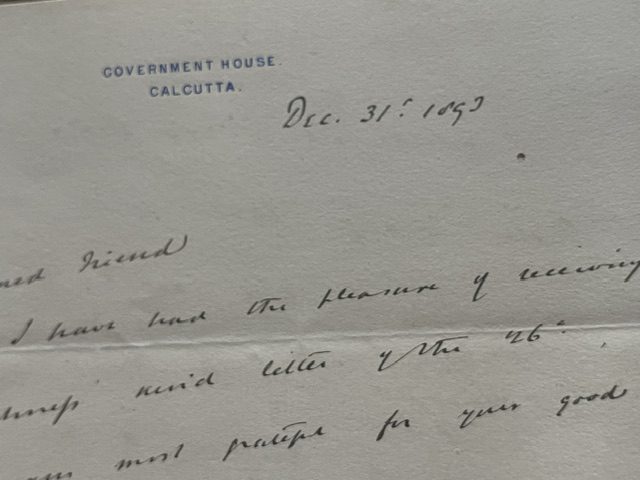 GOVERNMENT HOUSE.
CALCUTTA.
Dec. 31st 1893
med Friend
I have had the pleasure of receiving
hness' kind letter of the 26th
am most grateful for your good